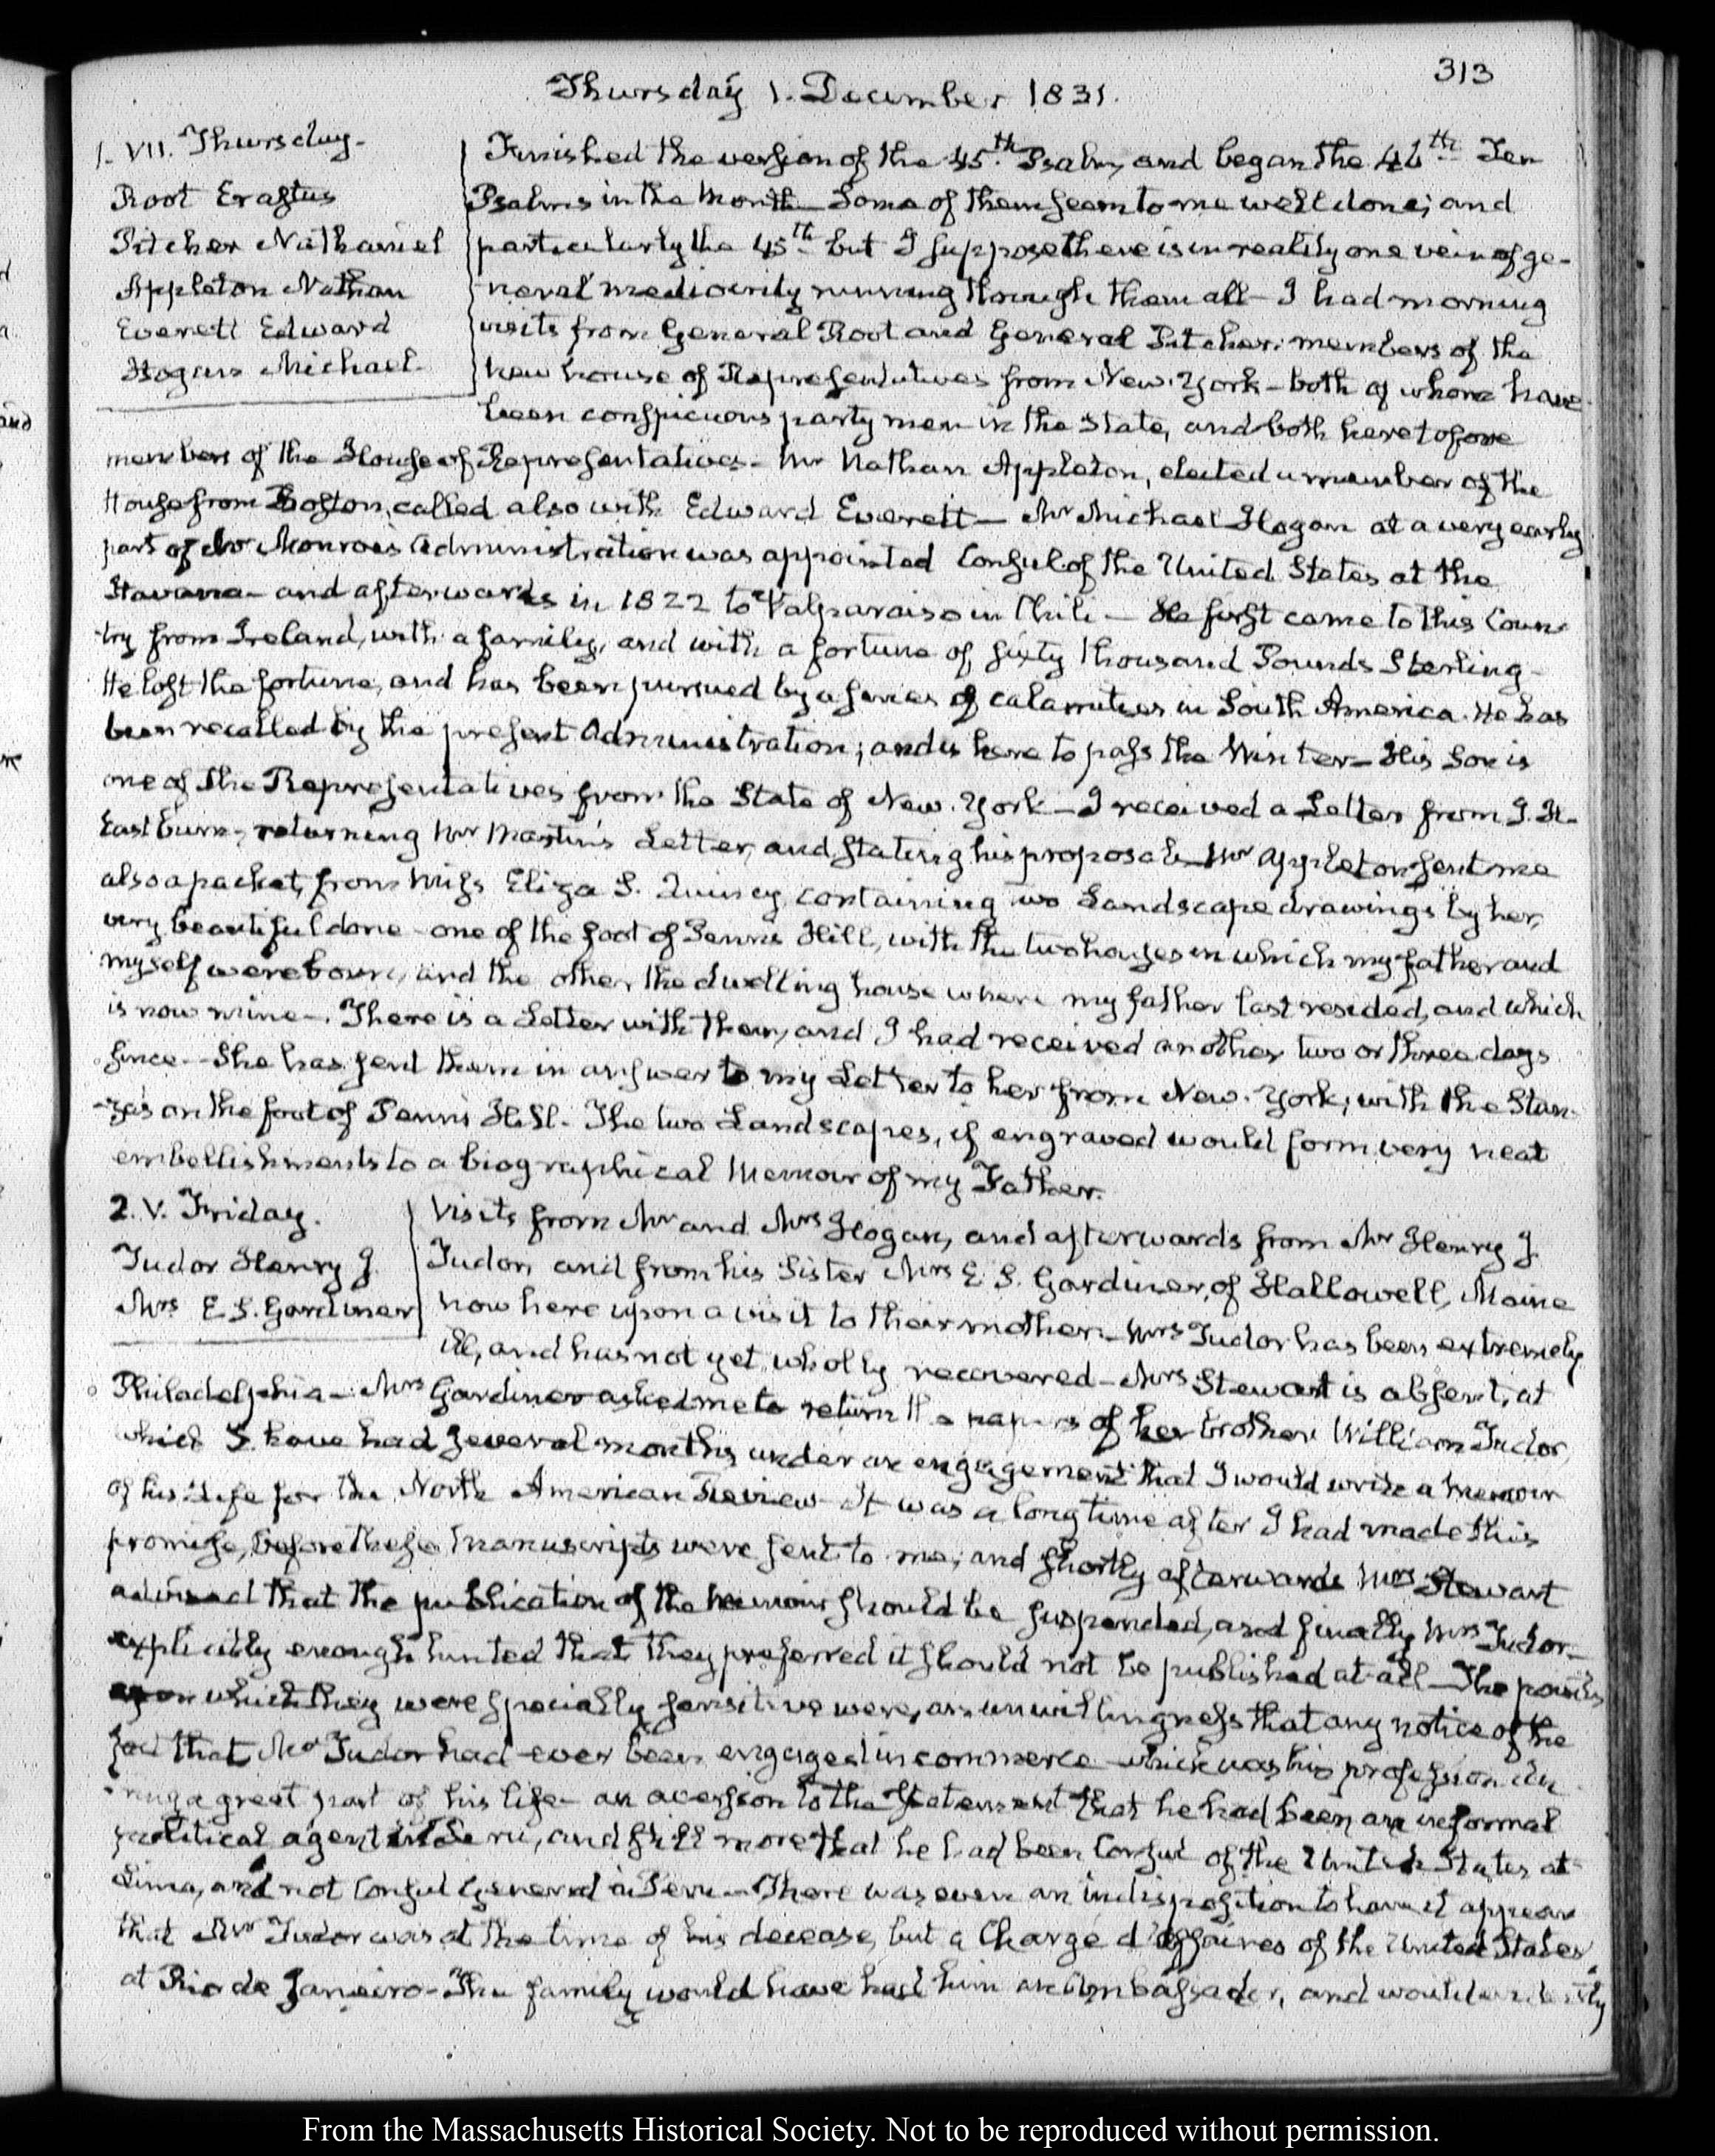 313
Thursday 1. December 1831.
1. VII. Thursday.
Root Erastus
Pitcher Nathaniel
Appleton Nathan
Everett Edward
Hogan Michael.
Finished the version of the 45.th Psalm, and began the 46th Ten
Psalms in the Month — Some of them seem to me well done; and
particularly the 45th but I suppose there is in reality one vein of ge-
neral mediocrity running through them all — I had morning
visits from General Root and General Pitcher: members of the
new house of Representatives from New-York — both of whom have
been conspicuous party men in the State, and both heretofore
members of the House of Representatives — Mr Nathan Appleton, elected a member of the
House from Boston, called also with Edward Everett — Mr Michael Hogan at a very early
part of Mr Monroe's Administration was appointed Consul of the United States at the
Havanna — and afterwards in 1822 to Valparaiso in Chili — He first came to this Coun-
try from Ireland, with a family, and with a fortune of sixty thousand Pounds Sterling —
He lost the fortune, and has been pursued by a series of calamities in South America. He has
been recalled by the present Administration; and is here to pass the Winter — His Son is
one of the Representatives from the State of New-York — I received a Letter from J. H.
Eastburn, returning Mr Martin's Letter, and stating his proposals — Mr Appleton sent me
also a packet, from Miss Eliza S. Quincy, containing two Landscape drawings by her,
very beautiful done — one of the foot of Penns Hill, with the two houses in which my father and
myself were born, and the other the dwelling house where my father last resided, and which
is now mine —. There is a Letter with them, and I had received another two or three days
since — She has sent them in answer to my Letter to her from New-York, with the Stan-
-zas on the foot of Penns Hill. The two Landscapes, if engraved would form very neat
embellishments to a biographical Memoir of my Father.
2. V. Friday.
Tudor Henry J.
Mrs E. S. Gardiner
Visits from Mr and Mrs Hogan, and afterwards from Mr Henry J.
Tudor, and from his Sister Mrs E. S. Gardiner, of Hallowell, Maine
now here upon a visit to their mother — Mrs Tudor has been extremely
ill, and has not yet wholly recovered — Mrs Stewart is absent, at
Philadelphia — Mrs Gardiner asked me to return the papers of her brother William Tudor,
which I have had several months, under an engagement that I would write a Memoir
of his Life for the North American Review — It was a long time after I had made this
promise, before these Manuscripts were sent to me; and shortly afterwards Mrs Stewart
advised that the publication of the Memoir should be suspended, and finally Mrs Tudor
explicitly enough hinted that they preferred it should not be published at all — The points
upon which they were specially sensitive were, an unwillingness that any notice of the
fact that Mr Tudor had ever been engaged in commerce which was his profession du-
-ring a great part of his life — an aversion to the statement that he had been an informal
political agent in Peru, and still more that he had been Consul of the United States at
Lima, and not Consul General in Peru — There was even an indisposition to have it appear
that Mr Tudor was at the time of his decease, but a Chargé d'Affaires of the United States,
at Rio de Janeiro — The family would have had him an Ambassador, and would
From the Massachusetts Historical Society. Not to be reproduced without permission.